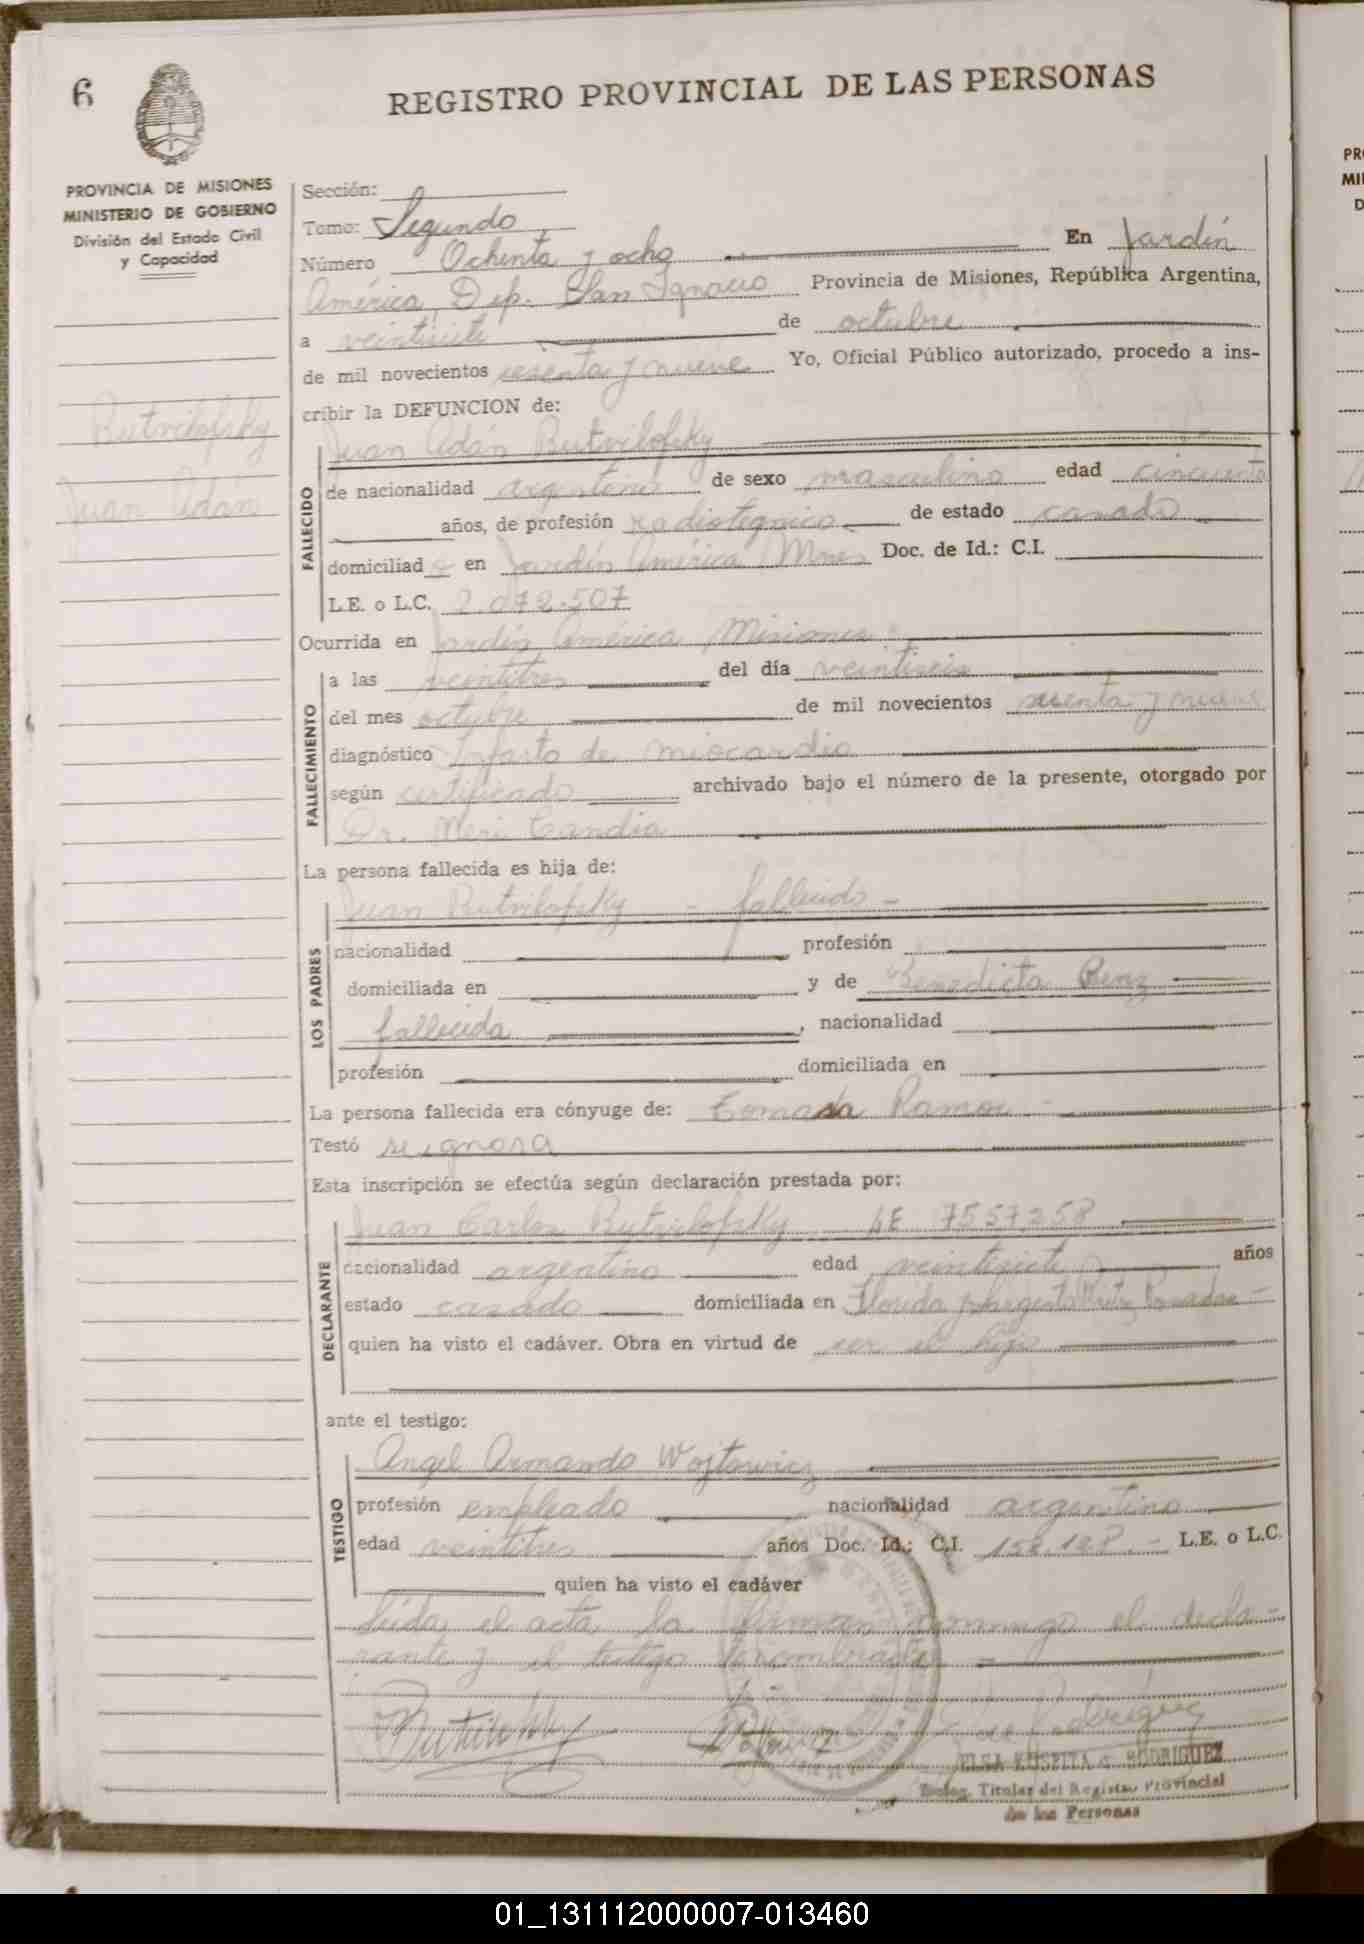 6
REGISTRO PROVINCIAL DE LAS PERSONAS
PROVINCIA DE MISIONES
MINISTERIO DE GOBIERNO
División del Estado Civil
y Capacidad
Rutvilofsky
Juan Adán
Sección:
Tomo: Segundo
Número Ochenta y ocho En Jardín
América, Dep. San Ignacio Provincia de Misiones, República Argentina,
a veintisiete de octubre
de mil novecientos sesenta y nueve Yo, Oficial Público autorizado, procedo a ins-
cribir la DEFUNCION de:
FALLECIDO
Juan Adán Rutvilofsky
de nacionalidad argentino de sexo masculino edad cincuenta
años, de profesión radiotegnico de estado casado
domiciliado en Jardín América Mnes Doc. de Id.: C.I.
L.E. o L.C. 2.072.507
Ocurrida en Jardín América, Misiones
FALLECIMIENTO
a las veintitres del día veintiseis
del mes octubre de mil novecientos sesenta y nueve
diagnóstico Infarto de miocardio
según certificado archivado bajo el número de la presente, otorgado por
Dr. Meri Candia
La persona fallecida es hija de:
LOS PADRES
Juan Rutvilofsky - fallecido -
nacionalidad profesión
domiciliada en y de Benedicta Renz
fallecida, nacionalidad
profesión domiciliada en
La persona fallecida era cónyuge de: Tomasa Ramos -
Testó se ignora
Esta inscripción se efectúa según declaración prestada por:
DECLARANTE
Juan Carlos Rutvilofsky LE 7557258
nacionalidad argentino edad veintisiete años
estado casado domiciliada en Florida y Sargento Posadas -
quien ha visto el cadáver. Obra en virtud de ser el hijo
ante el testigo:
TESTIGO
Angel Armando Wojtowicz
profesión empleado nacionalidad argentino
edad veintitres años Doc. Id.: C.I. 158.128.- L.E. o L.C.
quien ha visto el cadáver
Leída el acta la firman conmigo el decla-
rante y el testigo -
ELSA RODRIGUEZ
Titular del Registro Provincial
de las Personas
01_131112000007-013460